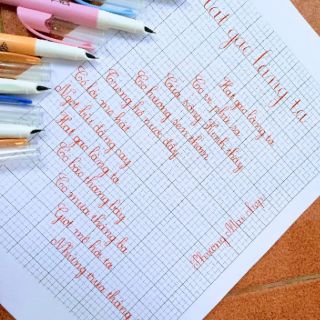 ạt gạo làng ta
Hạt gạo làng ta
Có vị phù sa
Của sông Kinh Thầy
Có hương sen thơm
Trong hồ nước đầy
Có lời mẹ hát
Ngọt bùi đắng cay
Hạt gạo làng ta
Có bão tháng bảy
Có mưa tháng ba
Giọt mồ hôi sa
Những trưa tháng
Phương Mai chép